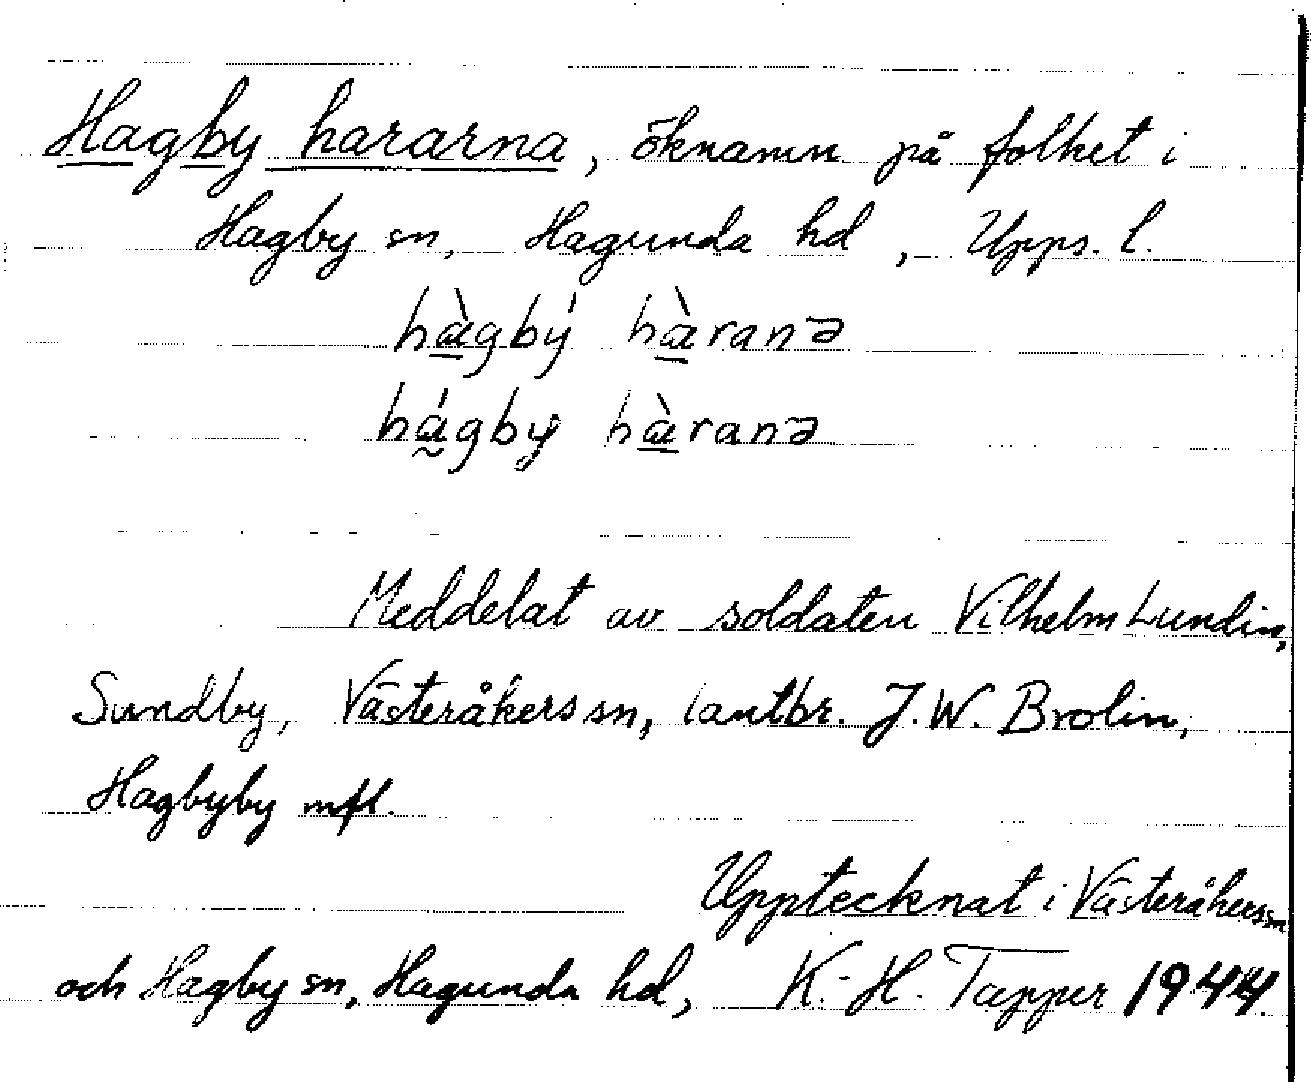 Hagby hararna, öknamn på folket i
Hagby sn, Hagunda hd, Upps. l.
hà̱gbý hà̱ranə
há̰gby hà̱ranə
Meddelat av soldaten Vilhelm Lundin,
Sundby, Västeråkers sn, lantbr. J.W. Brolin,
Hagbyby mfl.
Upptecknat i Västeråkers sn
och Hagby sn, Hagunda hd, K.-H. Tapper 1944.